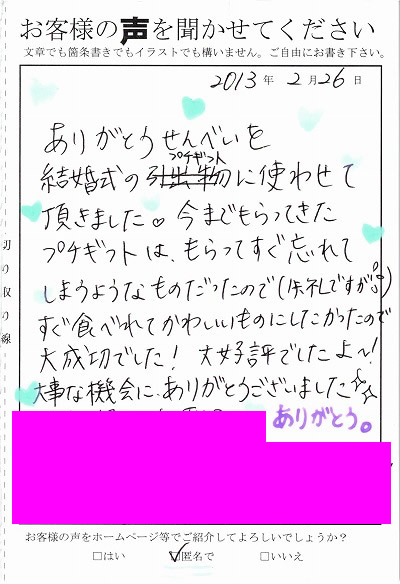 お客様の声を聞かせてください
文章でも箇条書きでもイラストでも構いません。ご自由にお書き下さい。
2013年 2月26日
ありがとうせんべいを
プチギフト
結婚式の引出物に使わせて
頂きました♡ 今までもらってきた
プチギフトは、もらってすぐ忘れて
しまうようなものだったので(失礼ですが
すぐ食べれてかわいいものにしたかったので
大成功でした! 大好評でしたよ〜!
大事な機会に、ありがとうございました☆
ありがとう。
切り取り線
お客様の声をホームページ等でご紹介してよろしいでしょうか?
□はい ☑匿名で □いいえ